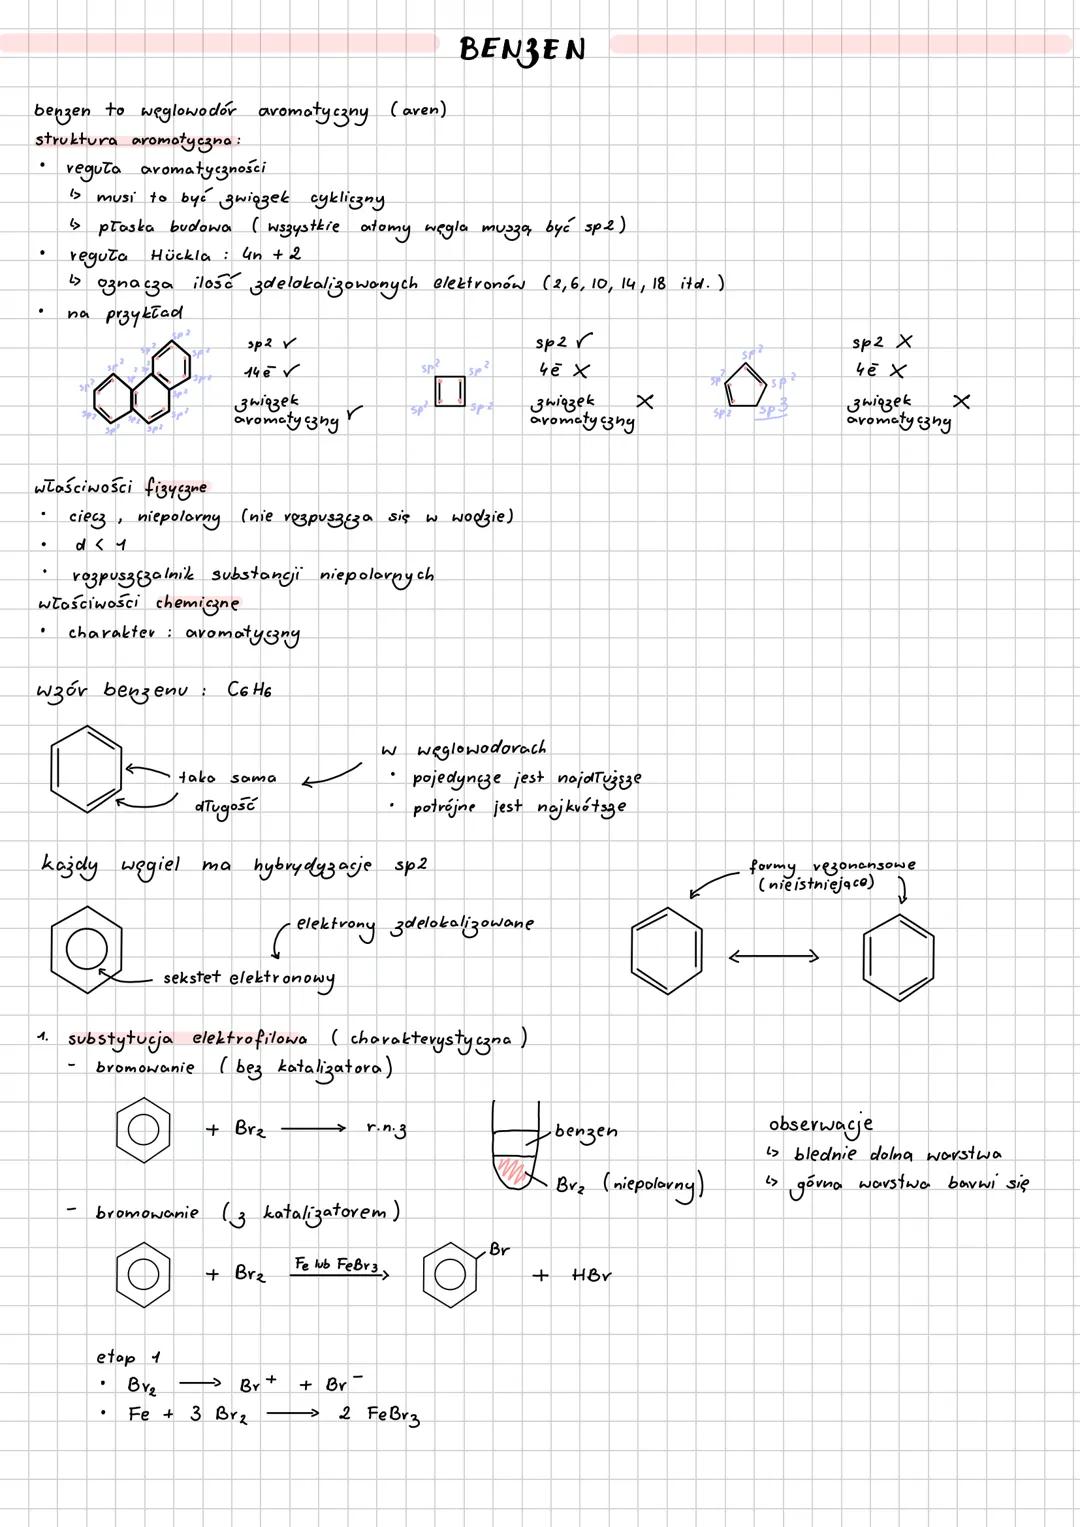 BENZEN
benzen to węglowodór aromatyczny (aren)
struktura aromatyczna:
• reguła aromatyczności
↳ musi to być związek cykliczny
↳ płaska budowa (wszystkie atomy węgla muszą być sp2)
• reguła Hückla : 4n + 2
↳ oznacza ilość zdelokalizowanych elektronów (2,6, 10, 14, 18 itd.)
• na przykład
sp2 sp2 sp2 sp2 sp2 sp2 sp2 sp2 sp2 sp2 sp2 sp2 sp2 sp2
sp2 ✓
14ē ✓
związek aromatyczny ✓
sp2 sp2 sp2 sp2
sp2 ✓
4ē X
związek aromatyczny X
sp2 sp2 sp2 sp2 sp3
sp2 X
4ē X
związek aromatyczny X
właściwości fizyczne
• ciecz, niepolarny (nie rozpuszcza się w wodzie)
• d < 1
• rozpuszczalnik substancji niepolarnych
właściwości chemiczne
• charakter : aromatyczny
wzór benzenu : C6H6
taka sama długość
w węglowodorach
• pojedyncze jest najdłuższe
• potrójne jest najkrótsze
każdy węgiel ma hybrydyzacje sp2
elektrony zdelokalizowane
sekstet elektronowy
formy rezonansowe
(nieistniejące)
1. substytucja elektrofilowa (charakterystyczna)
- bromowanie (bez katalizatora)
+ Br2 → r.n.z
benzen
Br2 (niepolarny)
obserwacje
↳ blednie dolna warstwa
↳ górna warstwa barwi się
- bromowanie (z katalizatorem)
+ Br2 Fe lub FeBr3 → Br + HBr
etap 1
• Br2 → Br+ + Br-
• Fe + 3 Br2 → 2 FeBr3